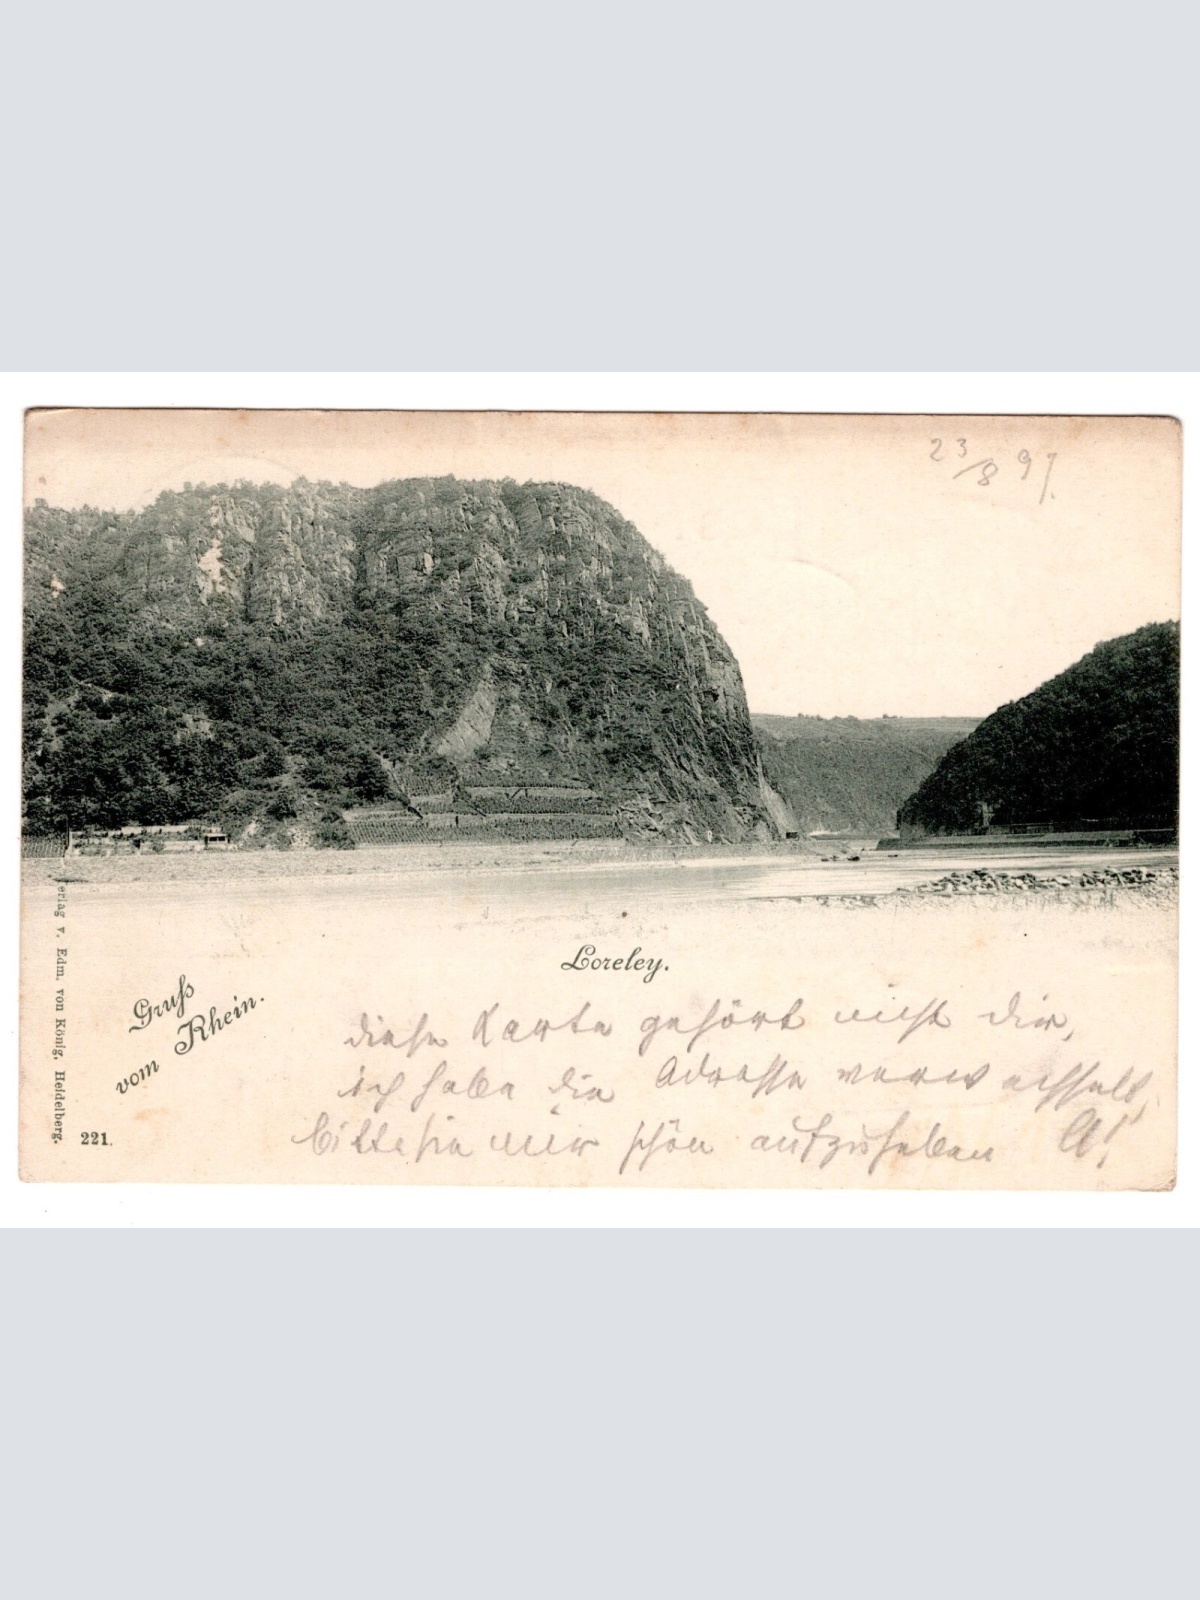 23/8 97.
Loreley.
Gruß
vom Rhein.
diese Karte gehört nicht dir,
ich habe die Adresse verwechselt,
bitte sie mir schön aufzuheben A!
Verlag v. Edm. von König, Heidelberg.
221.